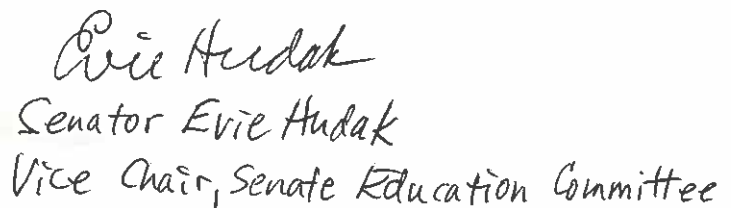 Evie Hudak
Senator Evie Hudak
Vice Chair, Senate Education Committee